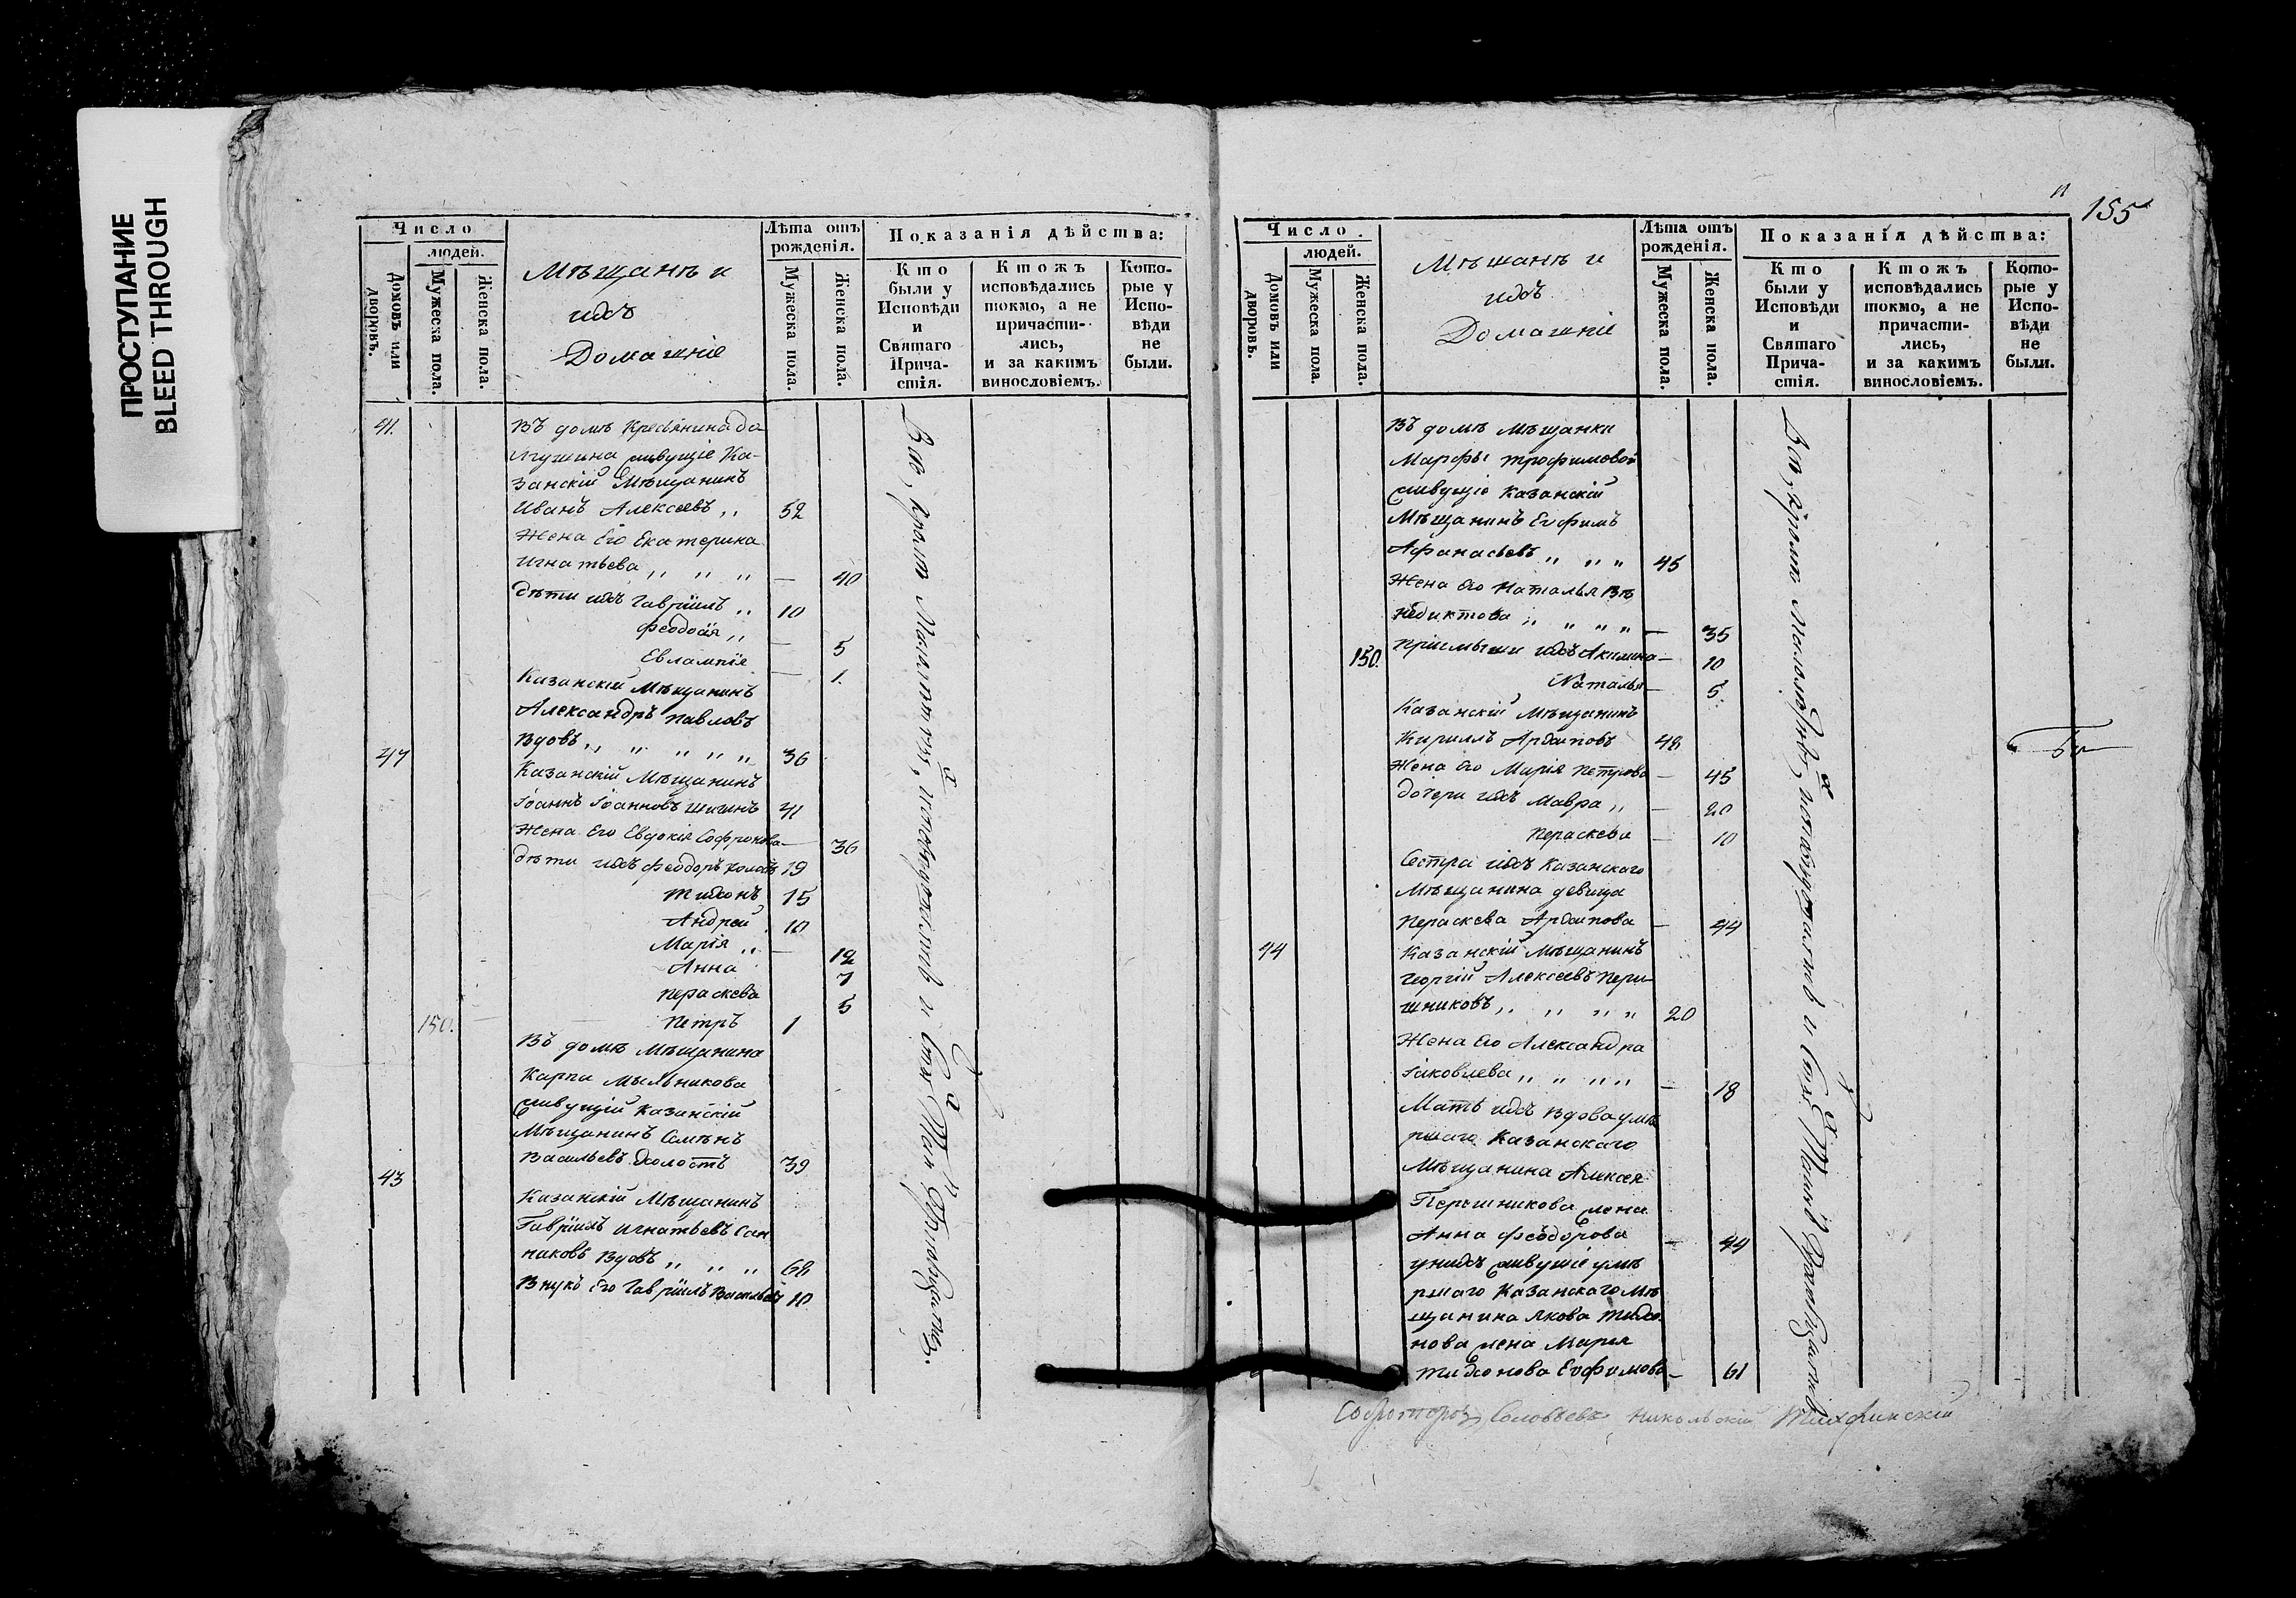 ПРОСТУПАНИЕ
BLEED THROUGH
Число
людей.
Домовъ или дворовъ.
Мужеска пола.
Женска пола.
Мѣщанъ и
ихъ
Домашніе
Лѣта отъ
рожденія.
Мужеска пола.
Женска пола.
Показанія дѣйства:
Кто
были у
Исповѣди
и
Святаго
Прича-
стія.
Ктожъ
исповѣдались
токмо, а не
причасти-
лись,
и за какимъ
винословіемъ.
Кото-
рые у
Испо-
вѣди
не
были.
41. Въ домѣ Крестьянина
живущіе Ка-
занскій Мѣщанинъ
Иванъ Алексѣевъ ,, 52
Жена Его Екатерина
Игнатьева ,, ,, ,, — 40
дѣти ихъ Гавріилъ ,, 10
Феодосія ,, — 5
Евлампіе — 1.
Казанскій Мѣщанинъ
Александръ Павловъ
Вдовъ ,, ,, ,, ,, ,, 36
Казанскій Мѣщанинъ
Іоаннъ Іоанновъ 41
Жена Его Евдокія Софронова — 36
дѣти ихъ Феодоръ холостъ 19
Тихонъ 15
Андрей 10
Марія ,, — 12
Анна 7
Параскева 5
150. Петръ 1
Въ домѣ Мѣщанина
Карпа Мыльникова
живущій Казанскій
Мѣщанинъ Семенъ
Васильевъ холостъ 39
43 Казанскій Мѣщанинъ
Гавріилъ Игнатьевъ Сан
никовъ Вдовъ ,, ,, ,, 68
Внукъ Его Гавріилъ Васильевъ 10
Всѣ, кромѣ Малолѣтнихъ, исповѣдались и Святыхъ Таинъ
155
Число
людей.
Домовъ или дворовъ.
Мужеска пола.
Женска пола.
Мѣщанъ и
ихъ
Домашніе
Лѣта отъ
рожденія.
Мужеска пола.
Женска пола.
Показанія дѣйства:
Кто
были у
Исповѣди
и
Святаго
Прича-
стія.
Ктожъ
исповѣдались
токмо, а не
причасти-
лись,
и за какимъ
винословіемъ.
Кото-
рые у
Испо-
вѣди
не
были.
Въ домѣ Мѣщанки
Марфы Трофимовой
живущіе Казанскій
Мѣщанинъ Ефимъ
Афанасьевъ ,, ,, ,, 45
Жена Его Наталья Ве
недиктова ,, ,, ,, ,, — 35
150. Пріемыши ихъ Акилина — 10
Наталья — 5
Казанскій Мѣщанинъ
Кириллъ Архиповъ 48
Жена Его Марія Петрова — 45
дочери ихъ Мавра ,, — 20
Параскева — 10
Сестра ихъ Казанскаго
Мѣщанина девица
Параскева Архипова — 44
44 Казанскій Мѣщанинъ
Георгій Алексѣевъ Пери
шниковъ ,, ,, ,, ,, 20
Жена Его Александра
Іаковлева ,, ,, ,, ,, — 18
Мать ихъ вдова уме
ршаго Казанскаго
Мѣщанина Алексея
Перешникова жена
Анна Феодорова — 44
у нихъ живущіе уме
ршаго Казанскаго Мѣ
щанина Якова Тихо
нова жена Марія
Тихонова Ефимова — 61
Всѣ, кромѣ Малолѣтнихъ, исповѣдались и Святыхъ Таинъ
Соловьевъ Никольскій Тихвинскій